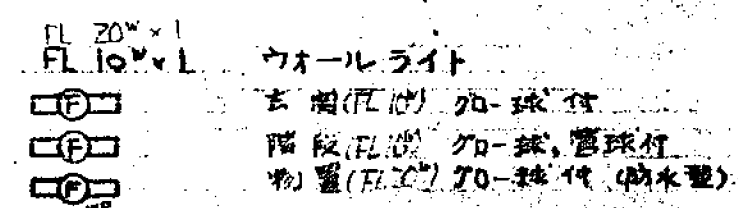 FL 20W×1
FL 10W×1 ウオールライト
F 玄関(FL10W) グロー球付
F 階段(FL10W) グロー球,管球付
F 物置(FL20W) グロー球付 (防水型)